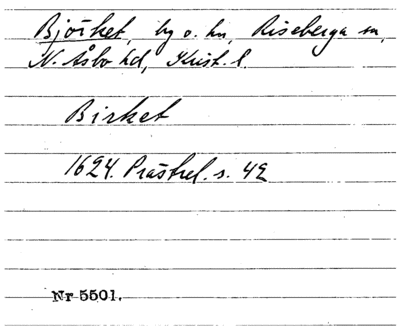 Björket, by o. hn, Riseberga sn,
N. Åsbo hd, Krist. l.
Birket
1624. Prästrel. s. 42
Nr 5501.